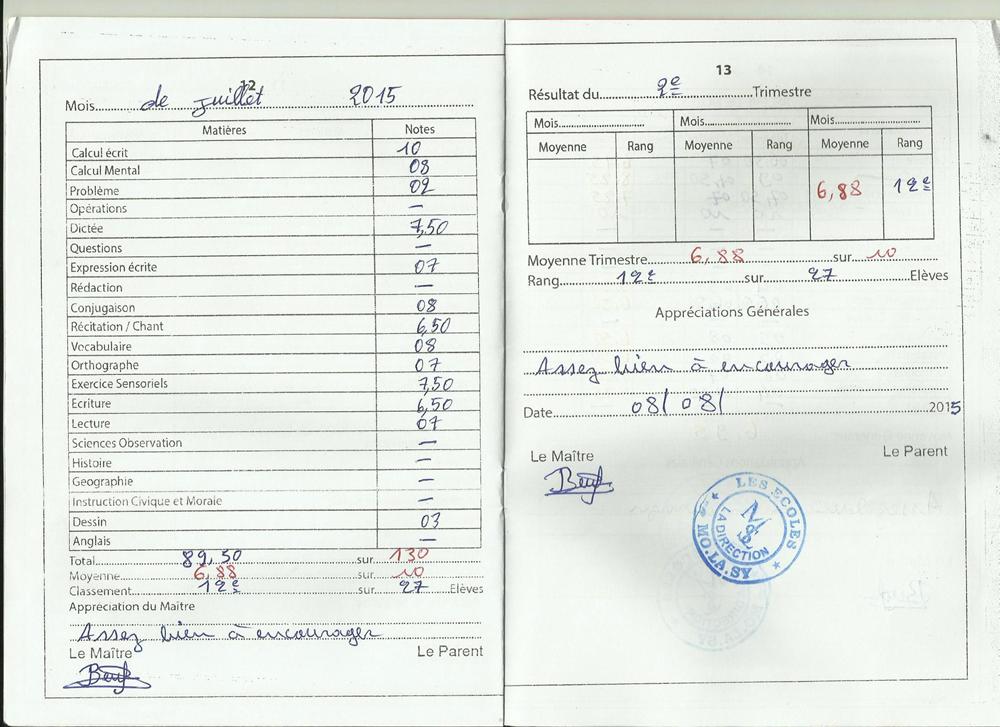 12
Mois de Juillet 2015
Matières Notes
Calcul écrit 10
Calcul Mental 08
Problème 02
Opérations —
Dictée 7,50
Questions —
Expression écrite 07
Rédaction —
Conjugaison 08
Récitation / Chant 6,50
Vocabulaire 08
Orthographe 07
Exercice Sensoriels 7,50
Ecriture 6,50
Lecture 07
Sciences Observation —
Histoire —
Geographie —
Instruction Civique et Morale —
Dessin 03
Anglais —
Total 89,50 sur 130
Moyenne 6,88 sur 10
Classement 12è sur 27 Elèves
Appréciation du Maitre
Assez bien à encourager
Le Maître Le Parent
13
Résultat du 2è Trimestre
Mois Mois Mois
Moyenne Rang Moyenne Rang Moyenne Rang
6,88 12è
Moyenne Trimestre 6,88 sur 10
Rang 12è sur 27 Elèves
Appréciations Générales
Assez bien à encourager
Date 08/ 08/ 2015
Le Maître Le Parent
LES ECOLES
MO.LA.SY
LA DIRECTION